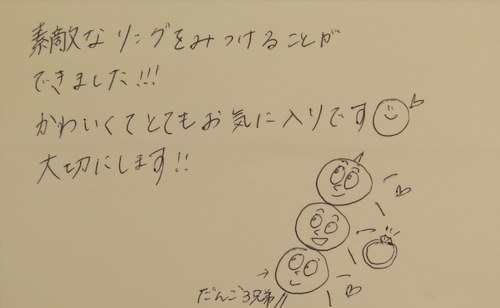 素敵なリングをみつけることが
できました!!!
かわいくてとてもお気に入りです
大切にします!!
だんご3兄弟